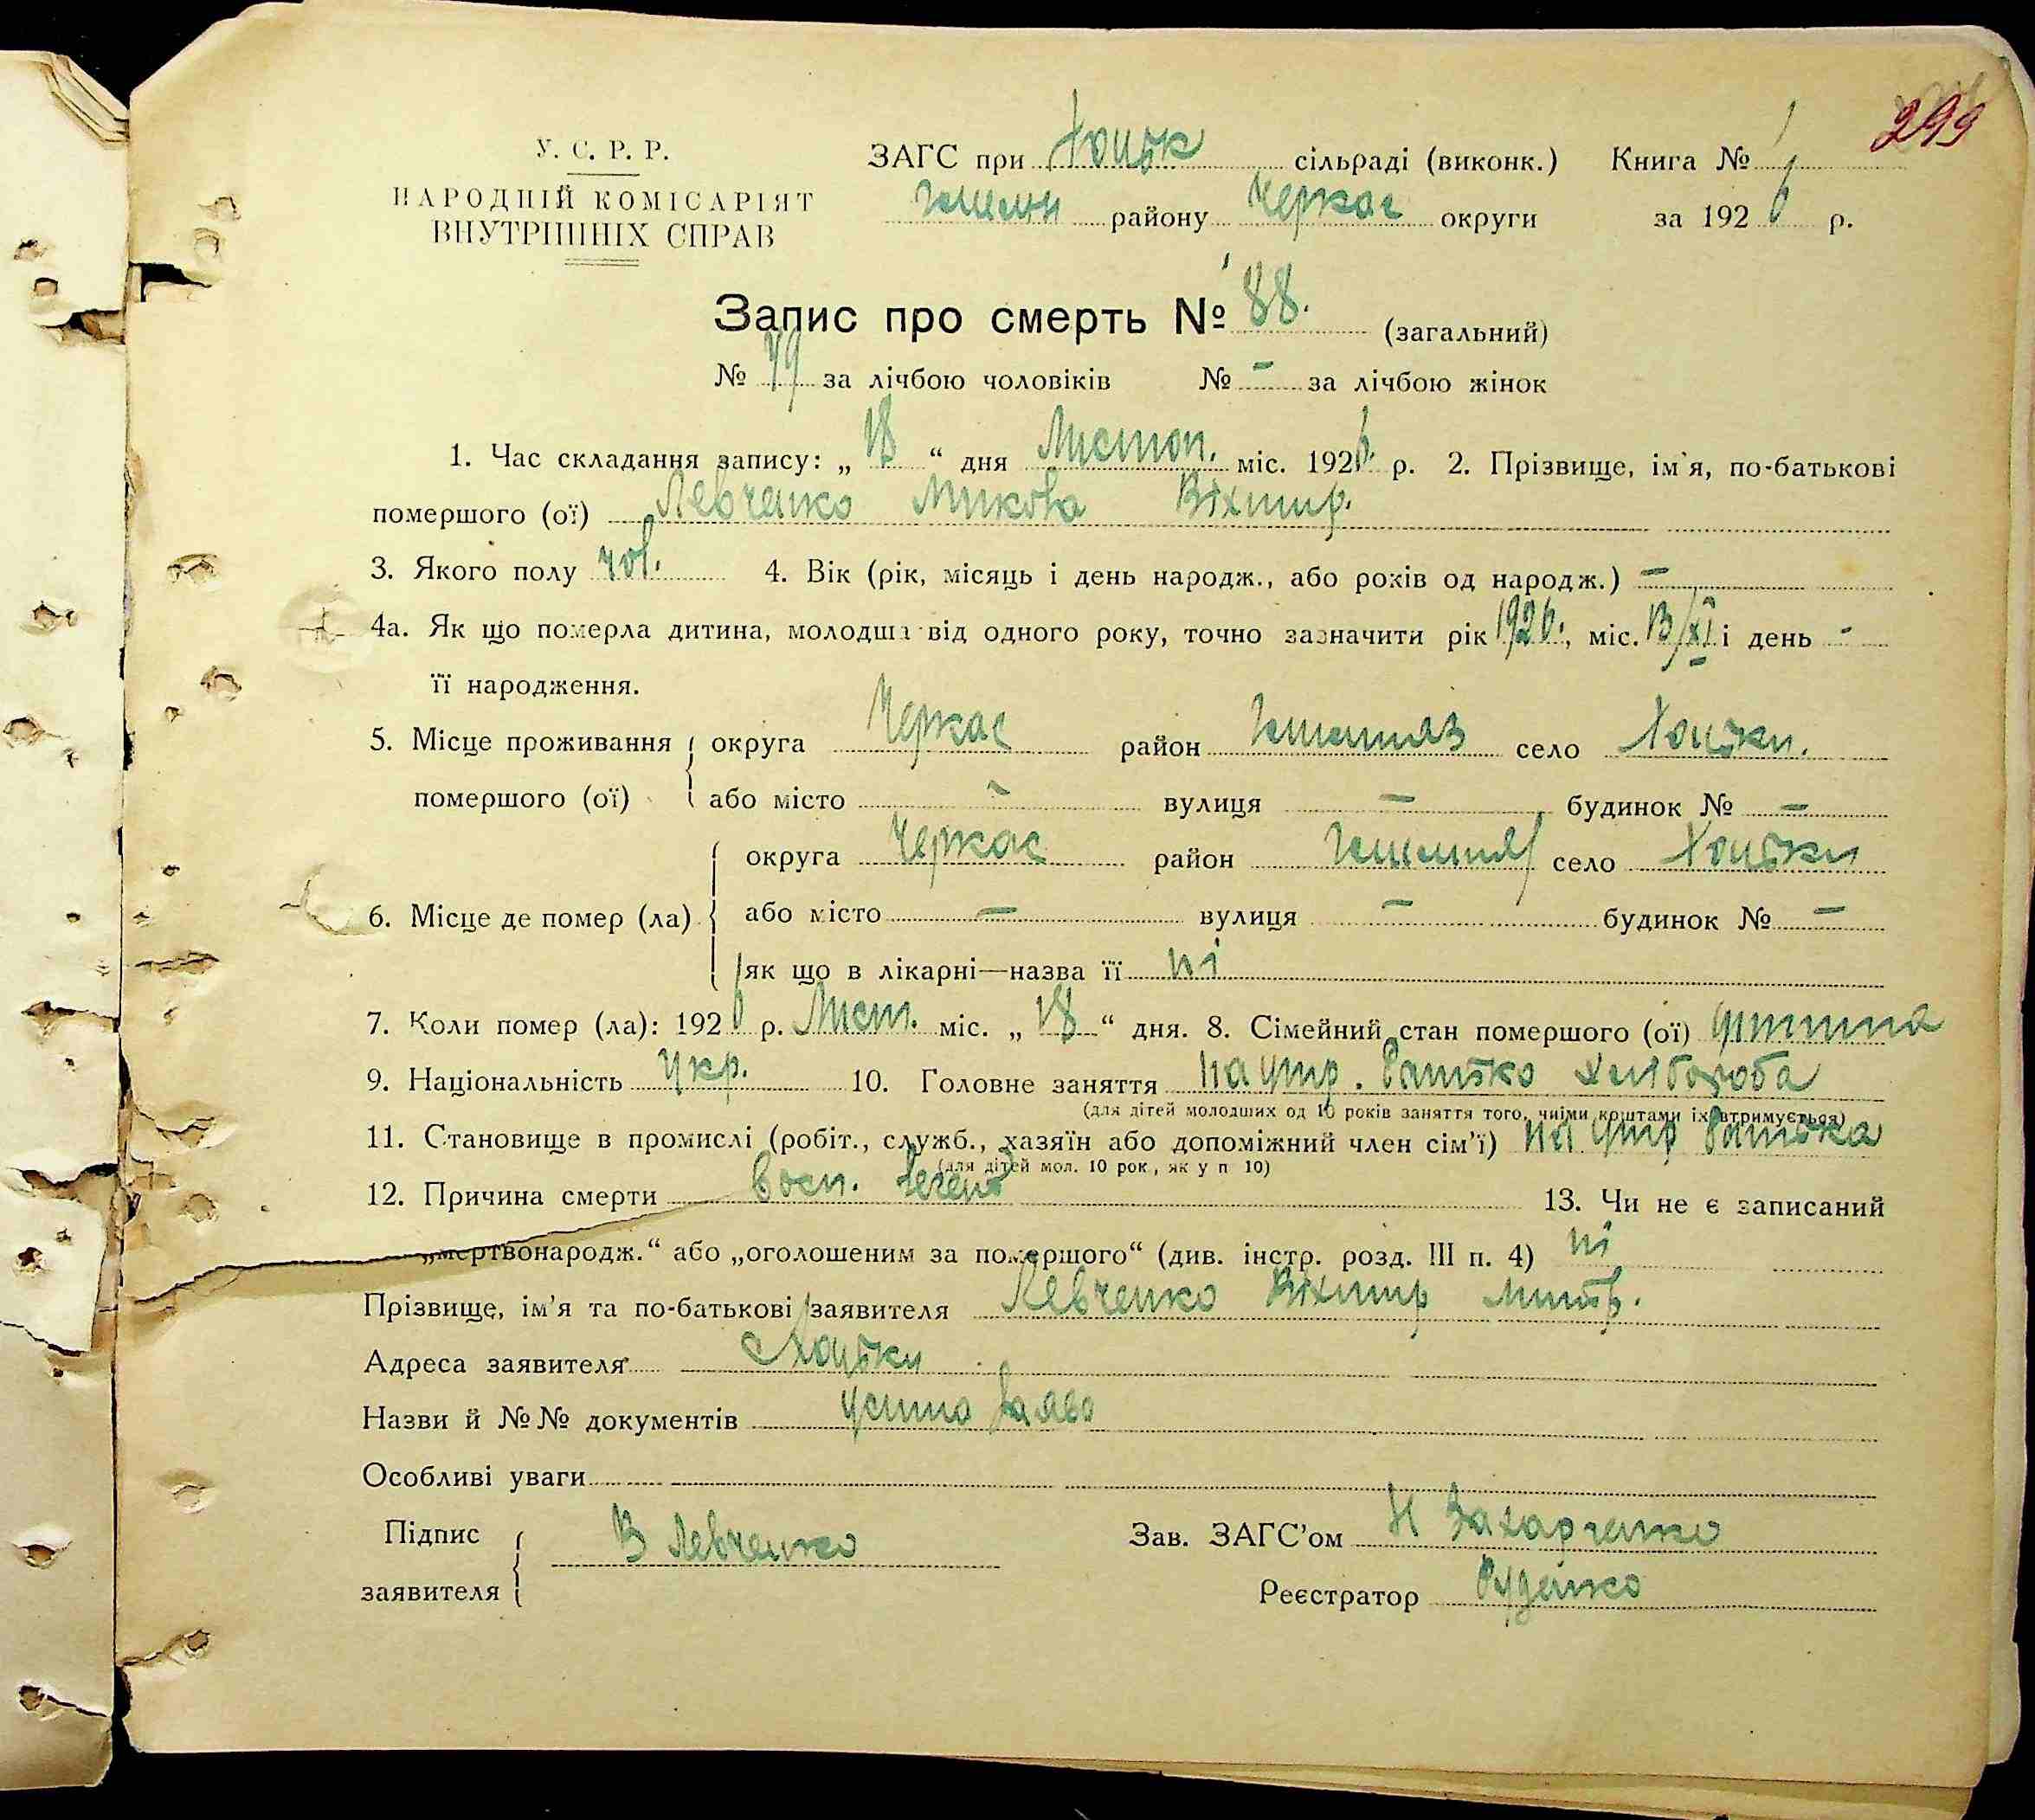 299
У. С. Р. Р.
НАРОДНІЙ КОМІСАРІЯТ
ВНУТРІШНІХ СПРАВ
ЗАГС при Хоцьк сільраді (виконк.) Книга № 1
району Черкас округи за 1926 р.
Запис про смерть № 88. (загальний)
№ 49 за лічбою чоловіків № - за лічбою жінок
1. Час складання запису: „18“ дня Листоп. міс. 1926 р. 2. Прізвище, ім'я, по-батькові
помершого (ої) Левченко Микола Віхтир.
3. Якого полу чол. 4. Вік (рік, місяць і день народж., або років од народж.) -
4а. Як що померла дитина, молодша від одного року, точно зазначити рік 1926., міс. 13/XI і день -
її народження.
5. Місце проживання округа Черкас район село Хоцьки.
помершого (ої) або місто - вулиця - будинок № -
округа Черкас район село Хоцьки
6. Місце де помер (ла) або місто - вулиця - будинок № -
як що в лікарні—назва її ні
7. Коли помер (ла): 1926 р. Лист. міс. „18“ дня. 8. Сімейний стан помершого (ої) дитина
9. Національність Укр. 10. Головне заняття на утр. батько хлібороба
(для дітей молодших од 10 років заняття того, чиїми коштами їх втримується)
11. Становище в промислі (робіт., служб., хазяїн або допоміжний член сім'ї) на утр батька
(для дітей мол. 10 рок., як у п 10)
12. Причина смерти восп. легень 13. Чи не є записаний
„мертвонародж.“ або „оголошеним за помершого“ (див. інстр. розд. III п. 4) ні
Прізвище, ім'я та по-батькові заявителя Левченко Віхтир
Адреса заявителя с Хоцьки
Назви й №№ документів устна заява
Особливі уваги
Підпис
заявителя В Левченко
Зав. ЗАГС'ом Н Захарченко
Реєстратор Руденко